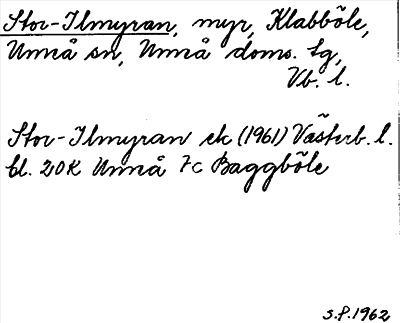 Stor-Ilmyran, myr, Klabböle,
Umeå sn, Umeå doms. tg,
Vb. l.
Stor-Ilmyran ek (1961) Västerb. l.
bl. 20K Umeå 7c Baggböle
S.P. 1962